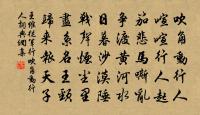 吹角動行人
喧喧行人起
笳悲馬嘶亂
爭渡黃河水
日暮沙漠陲
戰聲煙塵里
盡系名王頸
歸來報天子
王維從軍行吹角動行
人詞典網書